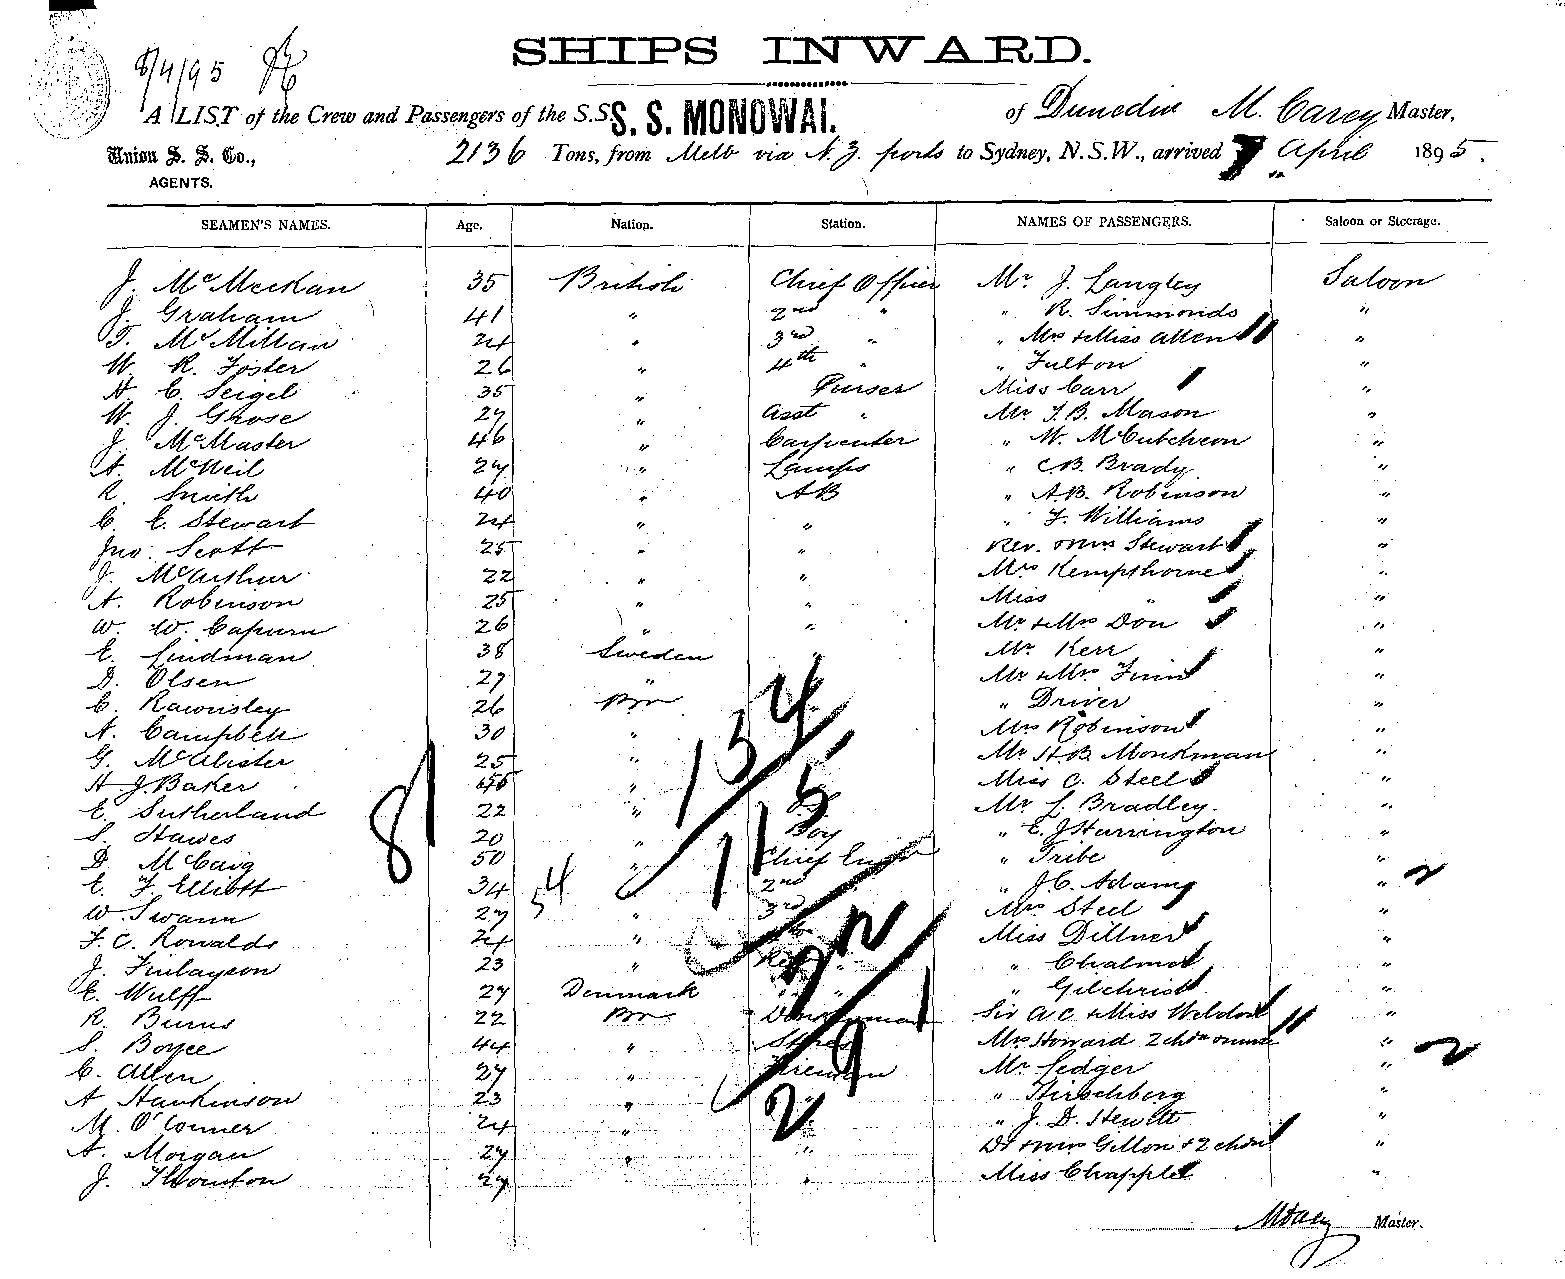 8/4/95
SHIPS INWARD.
A LIST of the Crew and Passengers of the S.S. S. S. MONOWAI. of Dunedin M. Carey Master,
Union S. S. Co., 2136 Tons, from Melb via N. Z. ports to Sydney, N.S.W., arrived April 1895.
AGENTS.
SEAMEN'S NAMES. Age. Nation. Station. NAMES OF PASSENGERS. Saloon or Steerage.
J. McMeekan 35 British Chief Officer Mr J. Langley Saloon
J. Graham 41 " 2nd " " R. Simmonds "
T. McMillan 24 " 3rd " " Mrs & Miss Allen "
W. R. Foster 26 " 4th " " Fulton "
H C. Seigel 35 " Purser Miss Carr "
W. J. Grose 27 " Asst " Mr F.B. Mason "
J. McMaster 46 " Carpenter " W. McCutcheon "
A. McNeil 27 " Lamps " C.B. Brady "
R. Smith 40 " AB " A.B. Robinson "
C. E. Stewart 24 " " " F. Williams "
Jno. Scott 25 " " Rev. & Mrs Stewart "
J. McArthur 22 " " Mrs Kempthorne "
A. Robinson 25 " " Miss " "
W. W. Capurn 26 " " Mr & Mrs Don "
E. Lindman 38 Sweden " Mr. Kerr "
D. Olsen 27 " Mr & Mrs Finn "
C. Rawnsley 26 Br " Driver "
A. Campbell 30 " Mrs Robinson "
G. McAlister 25 " Mr H.B. Monkman "
H J. Baker " Miss C. Steel "
E. Sutherland 22 " Mr L. Bradley. "
S. Hawes 20 " Boy " E. J Harrington "
D. McCaig 50 " Chief " Tribe "
E. F. Elliott 34 " 2nd " J.C. Adams " 2
W. Swann 27 " 3rd Mrs Steel "
F. C. Ronalds 24 " Miss Dillner "
J. Finlayson 23 " " Chalmers "
E. Wulff 27 Denmark " " Gilchrist "
R. Burns 22 Br Sir A C & Miss Weldon "
S. Boyce 44 " Stores Mrs Howard 2 chdn "
C. Allen 27 " Fireman Mr Ledger "
A Hankinson 23 " " " Hirschberg "
M. O'Conner 24 " " J. D. Hewitt "
A. Morgan 27 " " Dr & Mrs Gillon & 2 chdn "
J. Thornton 27 " Miss Chapple "
81
54
134
115
22
19
2
2
MCarey Master.